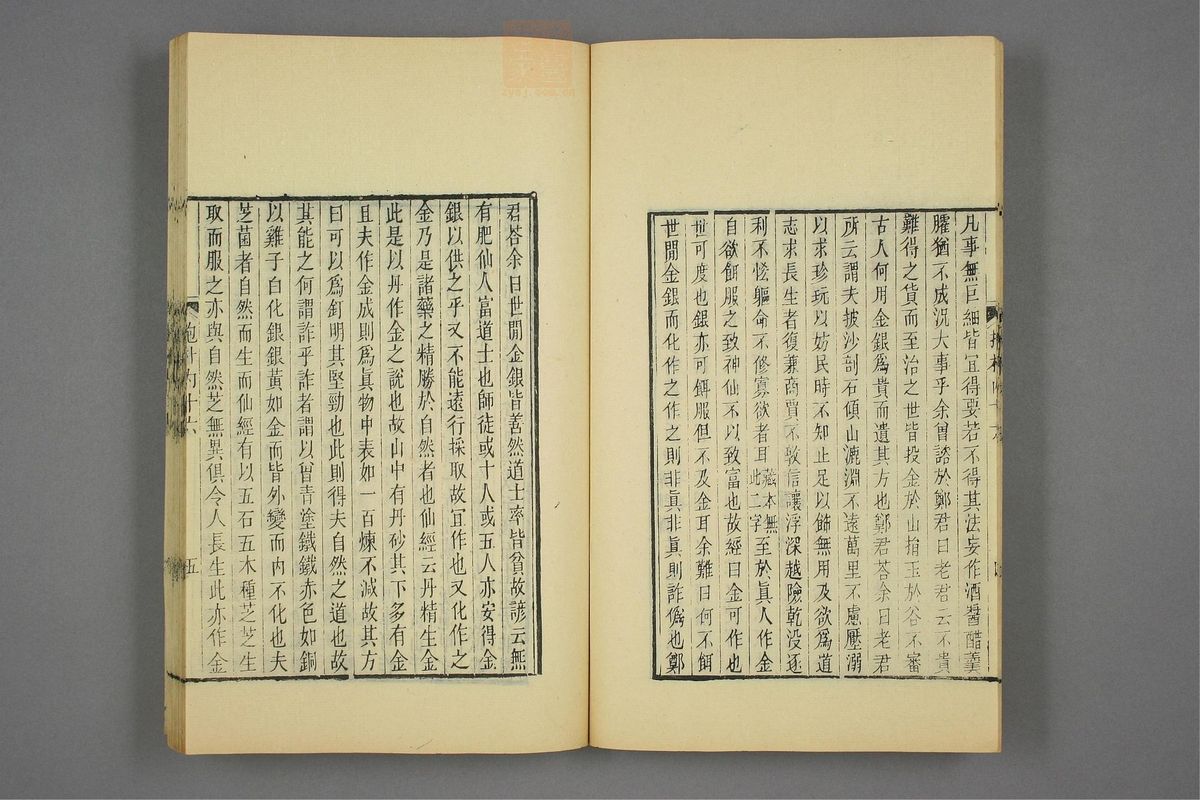 凡事無巨細皆宜得要若不得其法妄作酒醬醋羹
臛猶不成況大事乎余曾諮於鄭君曰老君云不貴
難得之貨而至治之世皆投金於山捐玉於谷不審
古人何用金銀爲貴而遺其方也鄭君荅余曰老君
所云謂夫披沙剖石傾山漉淵不遠萬里不慮壓溺
以求珍玩以妨民時不知止足以飾無用及欲爲道
志求長生者復兼商賈不敦信讓浮深越險乾没逐
利不恡軀命不修寡欲者耳藏本無此二字至於眞人作金
自欲餌服之致神仙不以致富也故經曰金可作也
世可度也銀亦可餌服但不及金耳余難曰何不餌
世閒金銀而化作之作之則非眞非眞則詐僞也鄭
君荅余曰世閒金銀皆善然道士率皆貧故諺云無
有肥仙人富道士也師徒或十人或五人亦安得金
銀以供之乎又不能遠行採取故宜作也又化作之
金乃是諸藥之精勝於自然者也仙經云丹精生金
此是以丹作金之說也故山中有丹砂其下多有金
且夫作金成則爲眞物中表如一百煉不減故其方
曰可以爲釘明其堅勁也此則得夫自然之道也故
其能之何謂詐乎詐者謂以曾青塗鐵鐵赤色如銅
以雞子白化銀銀黃如金而皆外變而内不化也夫
芝菌者自然而生而仙經有以五石五木種芝芝生
取而服之亦與自然芝無異俱令人長生此亦作金
抱朴内十六
五